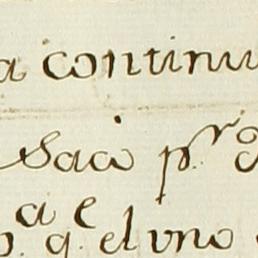 a continu
Saco pr
a e
p. q. el uno